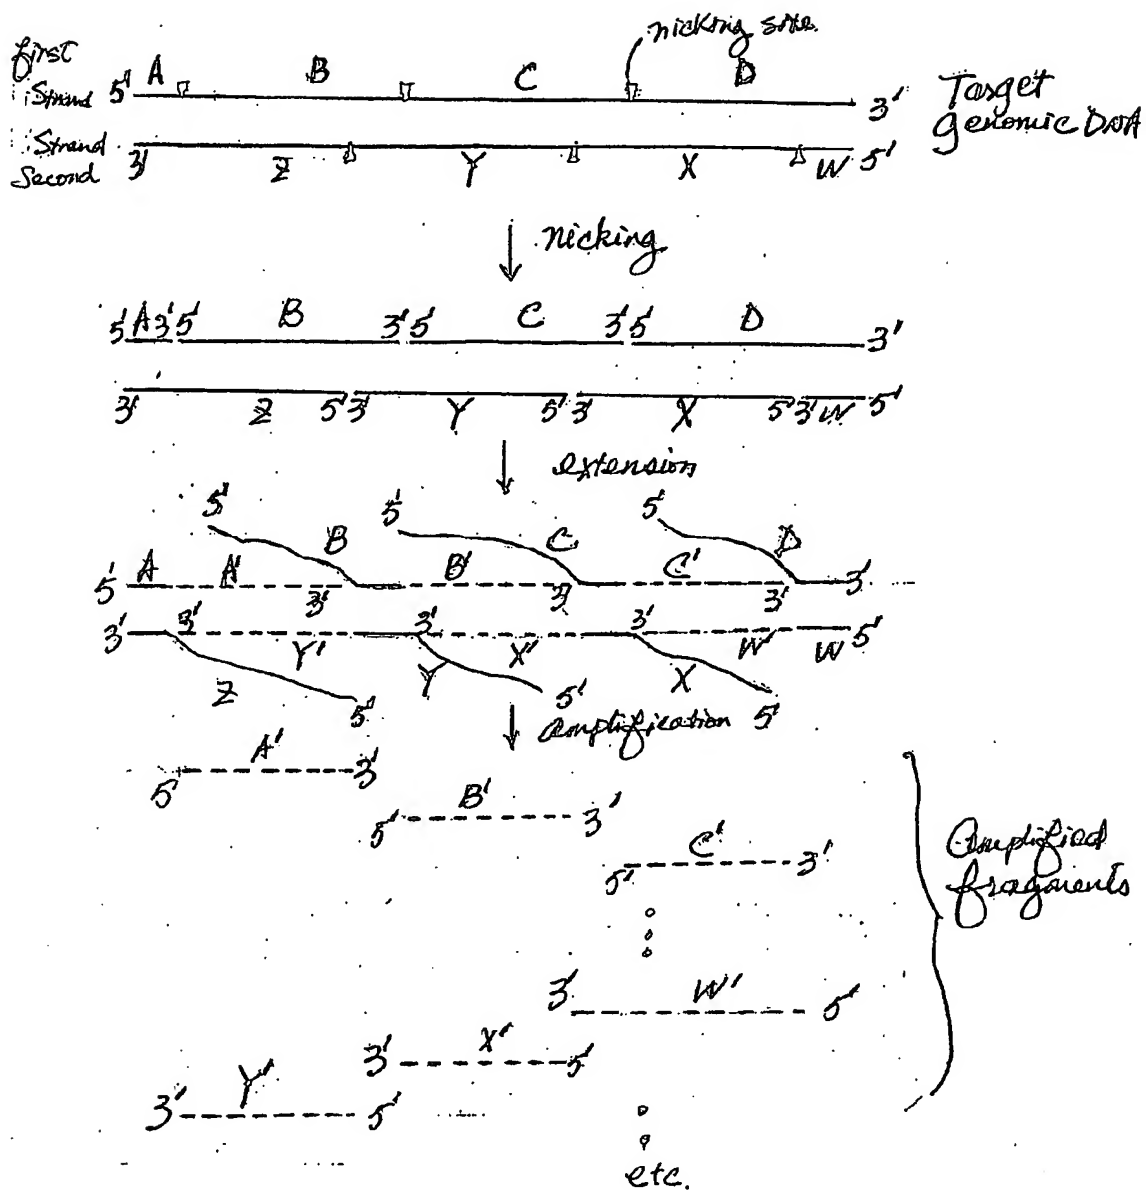 nicking site
first
Strand 5' A B C D 3'
Target
genomic DNA
Strand
Second 3' Z Y X W 5'
nicking
5' A 3' 5' B 3' 5' C 3' 5' D 3'
3' Z 5' 3' Y 5' 3' X 5' 3' W 5'
extension
5' 5' 5'
B C D
5' A A' 3' B' 3' C' 3' 3'
3' 3' Y' 3' X' 3' W' W 5'
Z Y X
5' 5' 5'
amplification
5' A' 3'
5' B' 3'
5' C' 3'
Amplified
fragments
3' W' 5'
3' X' 5'
3' Y' 5'
etc.